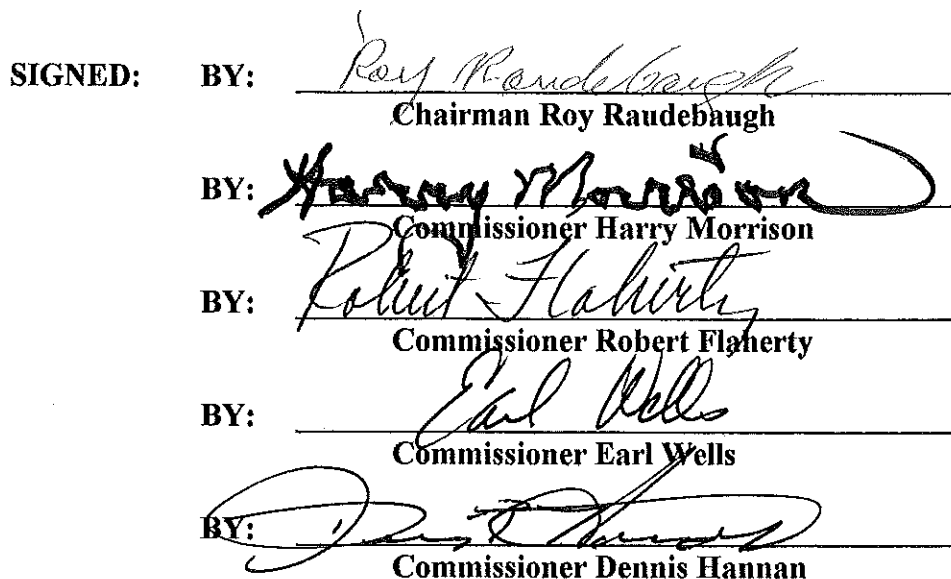 SIGNED: BY: Roy Raudebaugh
Chairman Roy Raudebaugh
BY: Harry Morrison
Commissioner Harry Morrison
BY: Robert Flaherty
Commissioner Robert Flaherty
BY: Earl Wells
Commissioner Earl Wells
BY: Dennis Hannan
Commissioner Dennis Hannan